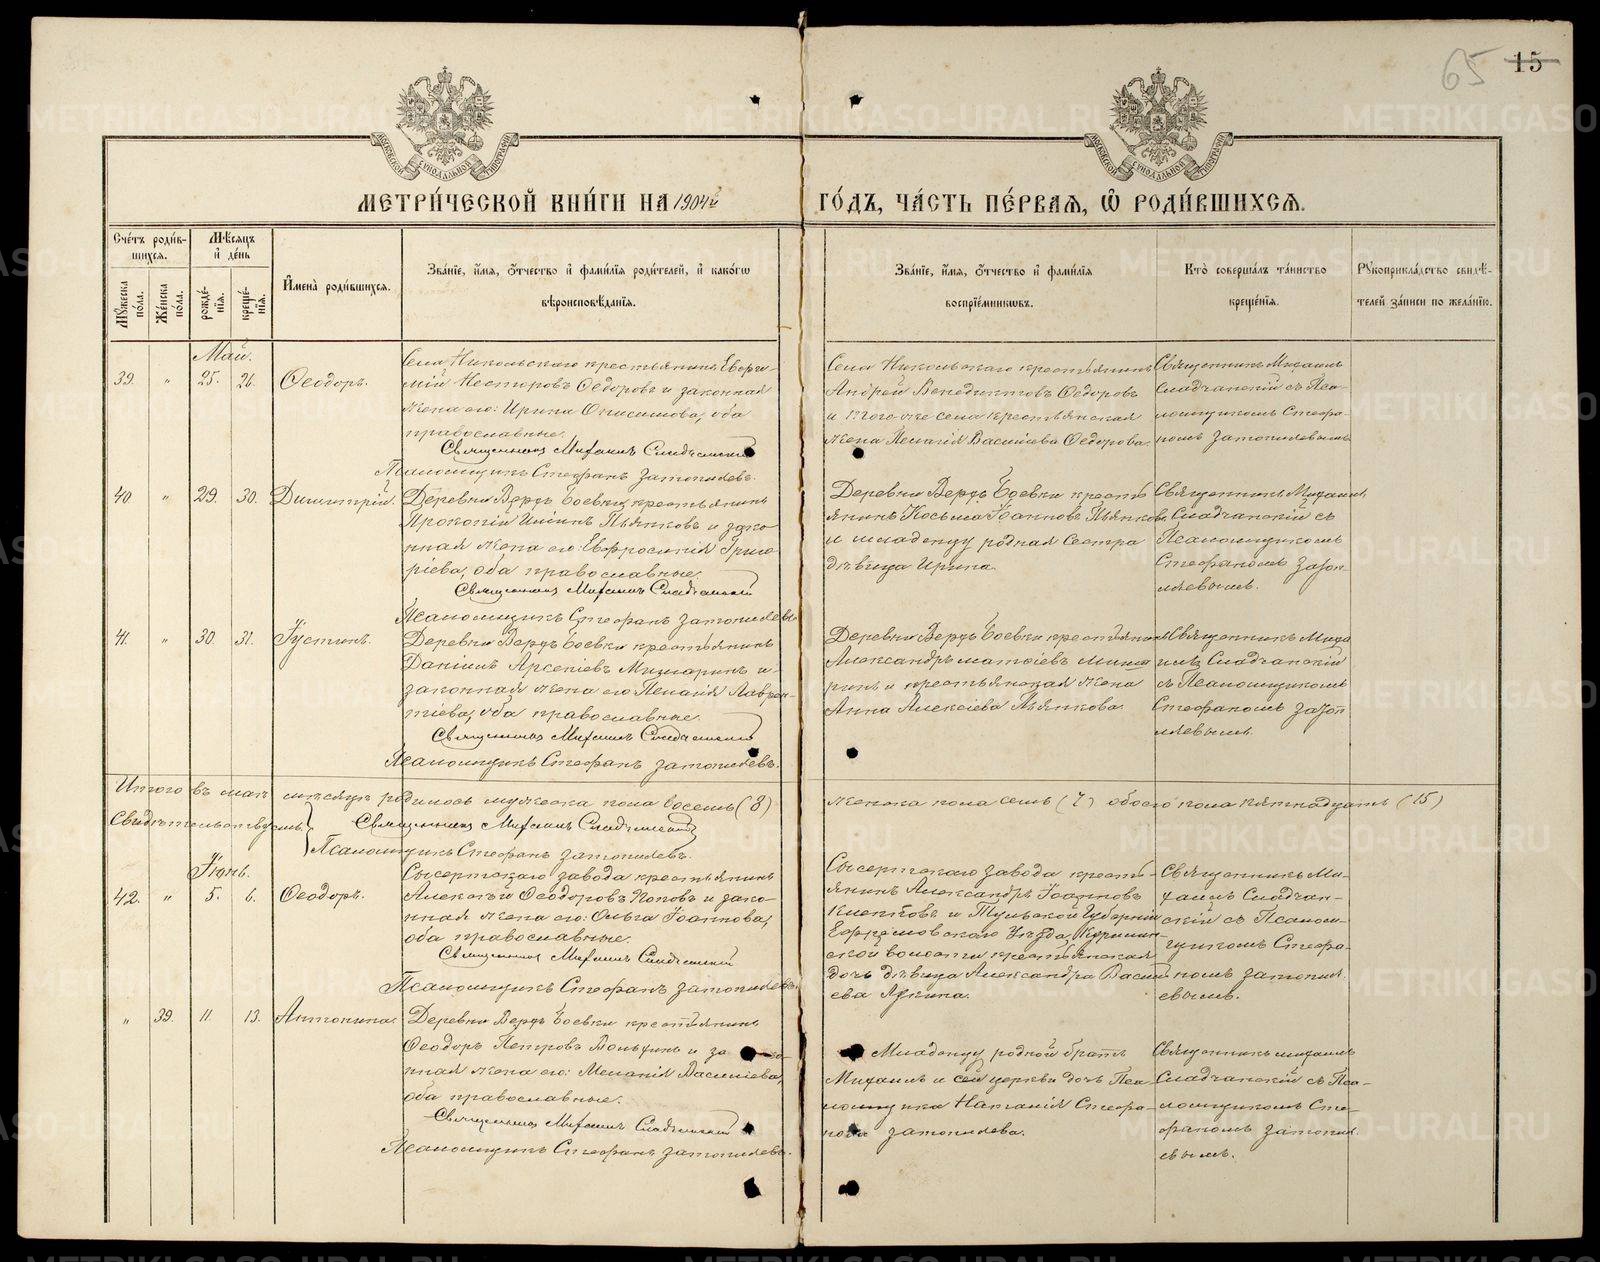 65 15
МОСКОВСКОЙ СѴНОДАЛЬНОЙ ТИПОГРАФІИ
МОСКОВСКОЙ СѴНОДАЛЬНОЙ ТИПОГРАФІИ
МЕТРИ́ЧЕСКОЙ КНИ́ГИ НА 1904й ГО́ДЪ, ЧА́СТЬ ПЕ́РВАѦ, Ѡ҆ РОДИ́ВШИХСѦ.
Сче́тъ роди́в-
шихсѧ.
Мꙋ́жеска по́ла.
Же́нска по́ла.
Мѣ́сѧцъ и҆ де́нь
рожде́-нїѧ.
креще́-нїѧ.
И҆мена̀ роди́вшихсѧ.
Зва́нїе, и҆́мѧ, ѻ҆́тчество и҆ фами́лїѧ роди́телей, и҆ како́гѡ
вѣроисповѣ́данїѧ.
Зва́нїе, и҆́мѧ, ѻ҆́тчество и҆ фами́лїѧ
воспрїе́мникѡвъ.
Кто̀ соверша́лъ та́инство
креще́нїѧ.
Рꙋкоприкла́дство свидѣ́-
телей за́писи по жела́нїю.
Май.
39. " 25. 26. Ѳеодоръ.
Села Никольскаго крестьянинъ Евѳи-
мій Несторовъ Ѳедоровъ и законная
жена его: Ирина Онисимова, оба
православные.
Священникъ Михаилъ Сладчанскій
Псаломщикъ Стефанъ Затопляевъ.
Села Никольскаго крестьянинъ
Андрей Венедиктовъ Ѳедоровъ
и того же села крестьянская
жена Пелагія Васильева Ѳедорова.
Священникъ Михаилъ
Сладчанскій съ Пса-
ломщикомъ Стефа-
номъ Затопляевымъ
40 " 29. 30. Димитрій.
Деревни Верхъ Боевки крестьянинъ
Прокопій Ильинъ Пьянковъ и зако-
нная жена его: Евфросинія Григо-
рьева, оба православные.
Священникъ Михаилъ Сладчанскій
Псаломщикъ Стефанъ Затопляевъ
Деревни Верхъ Боевки кресть-
янинъ Косьма Іоанновъ Пьянковъ
и младенцу родная сестра
дѣвица Ирина.
Священникъ Михаилъ
Сладчанскій съ
Псаломщикомъ
Стефаномъ Затоп-
ляевымъ.
41. " 30. 31. Іустинъ.
Деревни Верхъ Боевки крестьянинъ
Даніилъ Арсеніевъ Мишаринъ и
законная жена его Пелагія Лаврен-
тіева, оба православные.
Священникъ Михаилъ Сладчанскій
Псаломщикъ Стефанъ Затопляевъ.
Деревни Верхъ Боевки крестьянинъ
Александръ Матѳіевъ Миша
ринъ и крестьянская жена
Анна Алексіева Пьянкова.
Священникъ Миха
илъ Сладчанскій
съ Псаломщикомъ
Стефаномъ Затоп
ляевымъ.
Итого въ маѣ мѣсяцѣ родилось мужеска пола восемь (8) женска пола семь (7) обоего пола пятнадцать (15)
Свидѣтельствуемъ: Священникъ Михаилъ Сладчанскій
Псаломщикъ Стефанъ Затопляевъ.
Іюнь.
42. " 5. 6. Ѳеодоръ.
Сысертскаго завода крестьянинъ
Алексѣй Ѳеодоровъ Поповъ и зако-
нная жена его: Ольга Іоаннова,
оба православные.
Священникъ Михаилъ Сладчанскій
Псаломщикъ Стефанъ Затопляевъ.
Сысертскаго завода кресть-
янинъ Александръ Іоанновъ
и Тульской Губерніи
Ефремовскаго Уѣзда,
ской волости крестьянская
дочь дѣвица Александра Василь-
ева
Священникъ Ми-
хаилъ Сладчан-
скій съ Псалом-
щикомъ Стефа-
номъ Затопля
евымъ.
" 39. 11. 13. Антонина.
Деревни Верхъ Боевки крестьянинъ
Ѳеодоръ Петровъ и зако-
нная жена его: Меланія Васильева,
оба православные.
Священникъ Михаилъ Сладчанскій
Псаломщикъ Стефанъ Затопляевъ.
Младенцу родной братъ
Михаилъ и сей церкви дочь Пса-
ломщика Наталія Стефа-
нова Затопляева.
Священникъ Михаилъ
Сладчанскій съ Пса-
ломщикомъ Сте-
фаномъ Затопля
евымъ.
METRIKI.GASO-URAL.RU